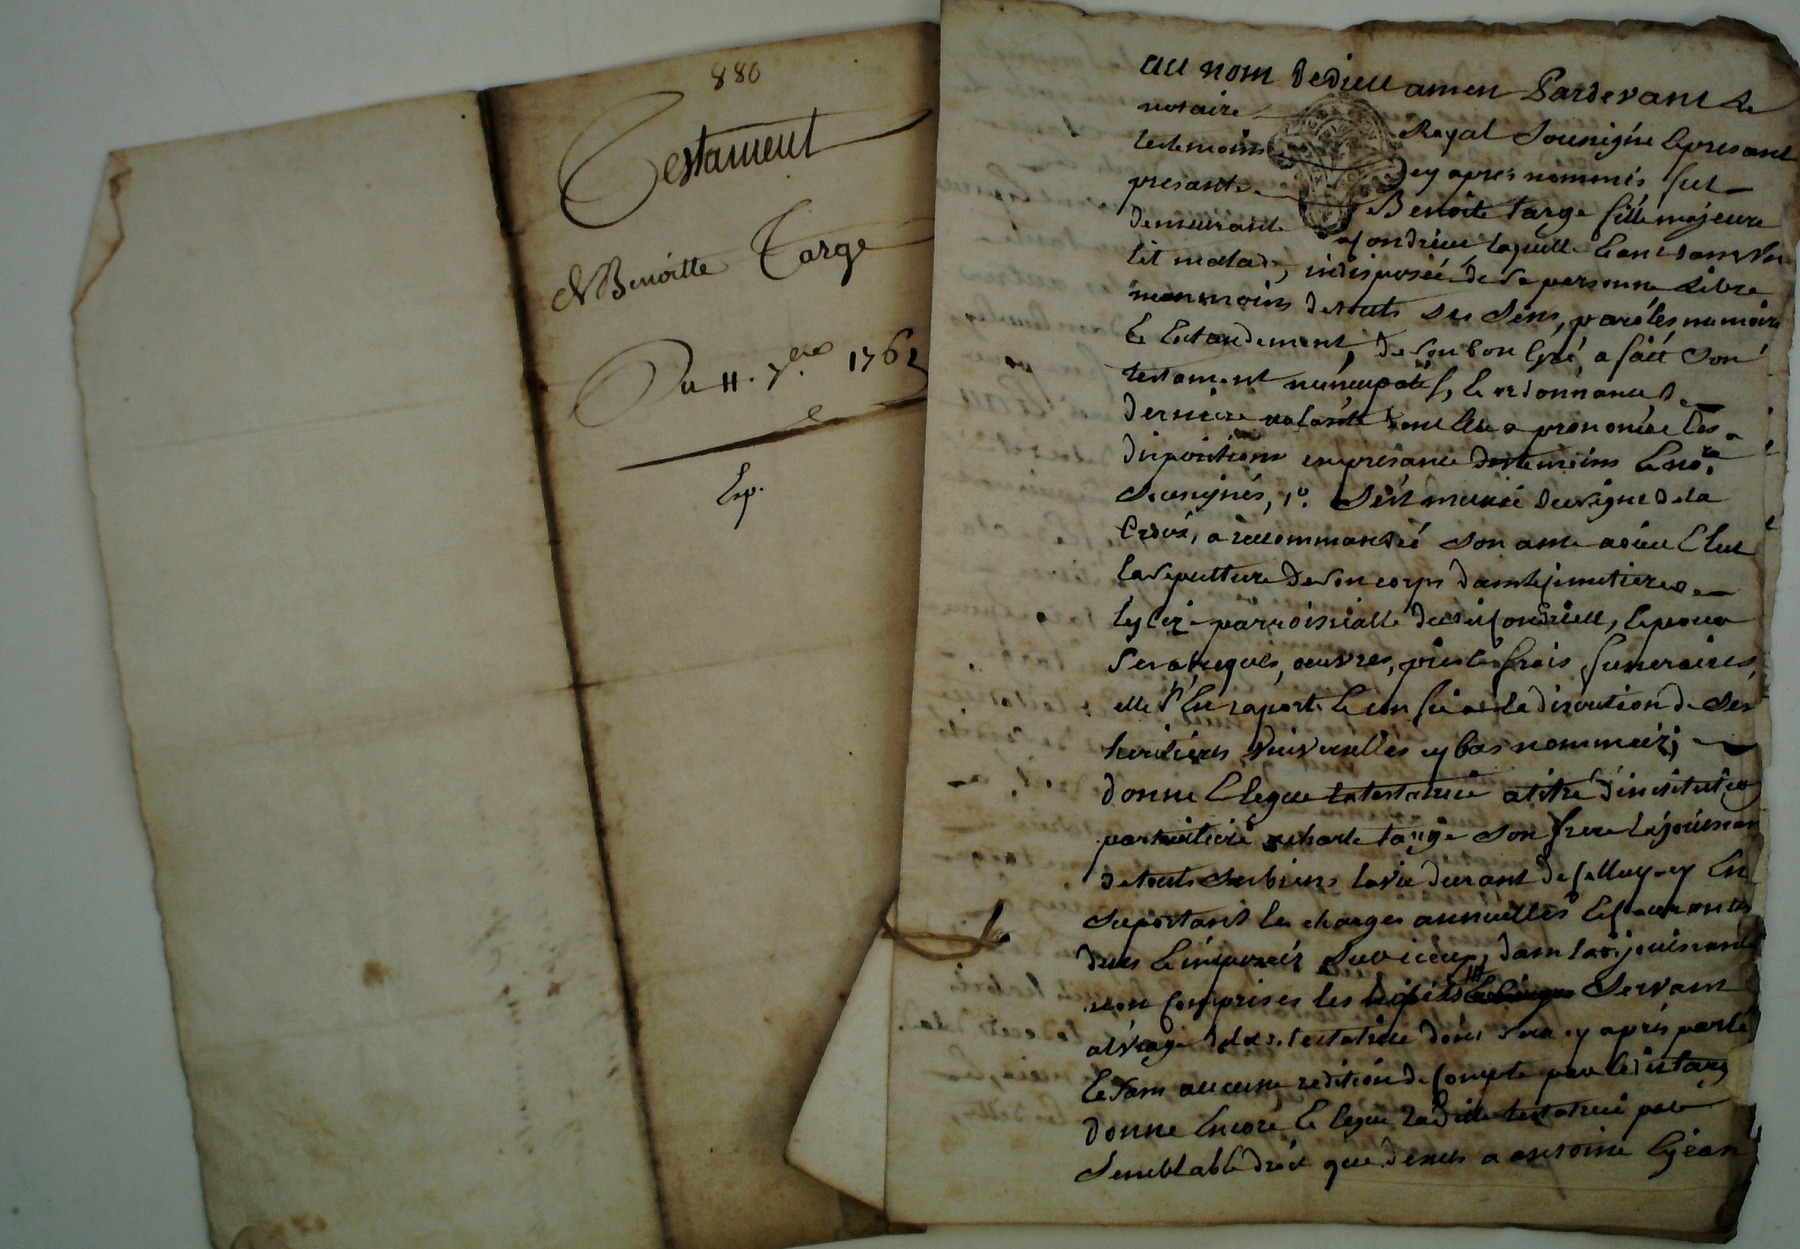 880
Testament
De Benoitte Targe
Du 11. 7bre 1762
Exp.
au nom dedieu amen Pardevant Le
notaire Royal Sousigné lepresant
testemoins cy apres nommés fut
presante Benoite targe fille majeure
demeurante a Condrieu laquelle Etant dans Un
lit malade, indisposéé de Sa personne Libre
neanmoins detouts Ses Sens, parolés memoire
Et Entandement, de Son bon Gré a fait Son
testament nuncupatif, Et ordonnance de
derniere volonté dont Elle a prononcée les
dispositions enpresance destemoins Et nore
Sousignés, 1o. S'est munié du Signe de la
Croix, a recommandéé Son ame a dieu Elut
la Sepulture de Son corps dans le Cimetiere de
leglize parroissialle dudit Condrieu, Et pour
Ses obseques, oeuvres, pies Et frais funeraires
elle S'En raporte Et confie a la discrution de Ses
heritieres Universelles cy bas nommeéz;
donne Et legue la testatrice a titre d'institution
particuliere a charle targe Son frere la jouissan
de touts Ses biens la vie durant de Celluy cy En
Suportant les charges annuelles Et Courantes
dues Et imposéz Sur iceux, dans la jouissance
non Comprises les Servant
a l'usage de lad. testatrice dont Sera cy aprés parlé
Et Sans aucune redition de Compte par ledit targ
donne Encore Et legue ladite testatrice par
Semblable droit que dessus a antoine Et jean